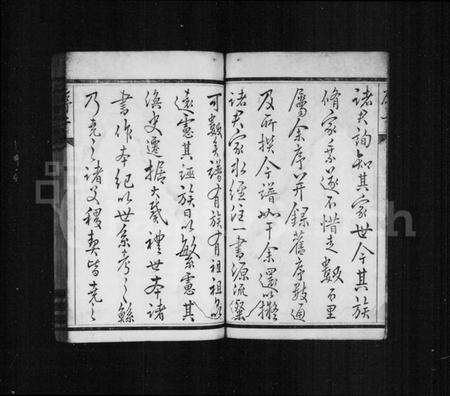 諸君詢知其家世今其族
脩家乘遂不惜走數百里
屬余序并錄舊序數通
及所撰今譜如干余還以擬
諸君家水經注一書源流粲
可數矣譜有族有祖祖多以
遠憲其誣族日以繁憲其
渙史遷據大戴禮世本諸
書作本紀以世系考之鯀
乃堯之諸父稷契皆堯之